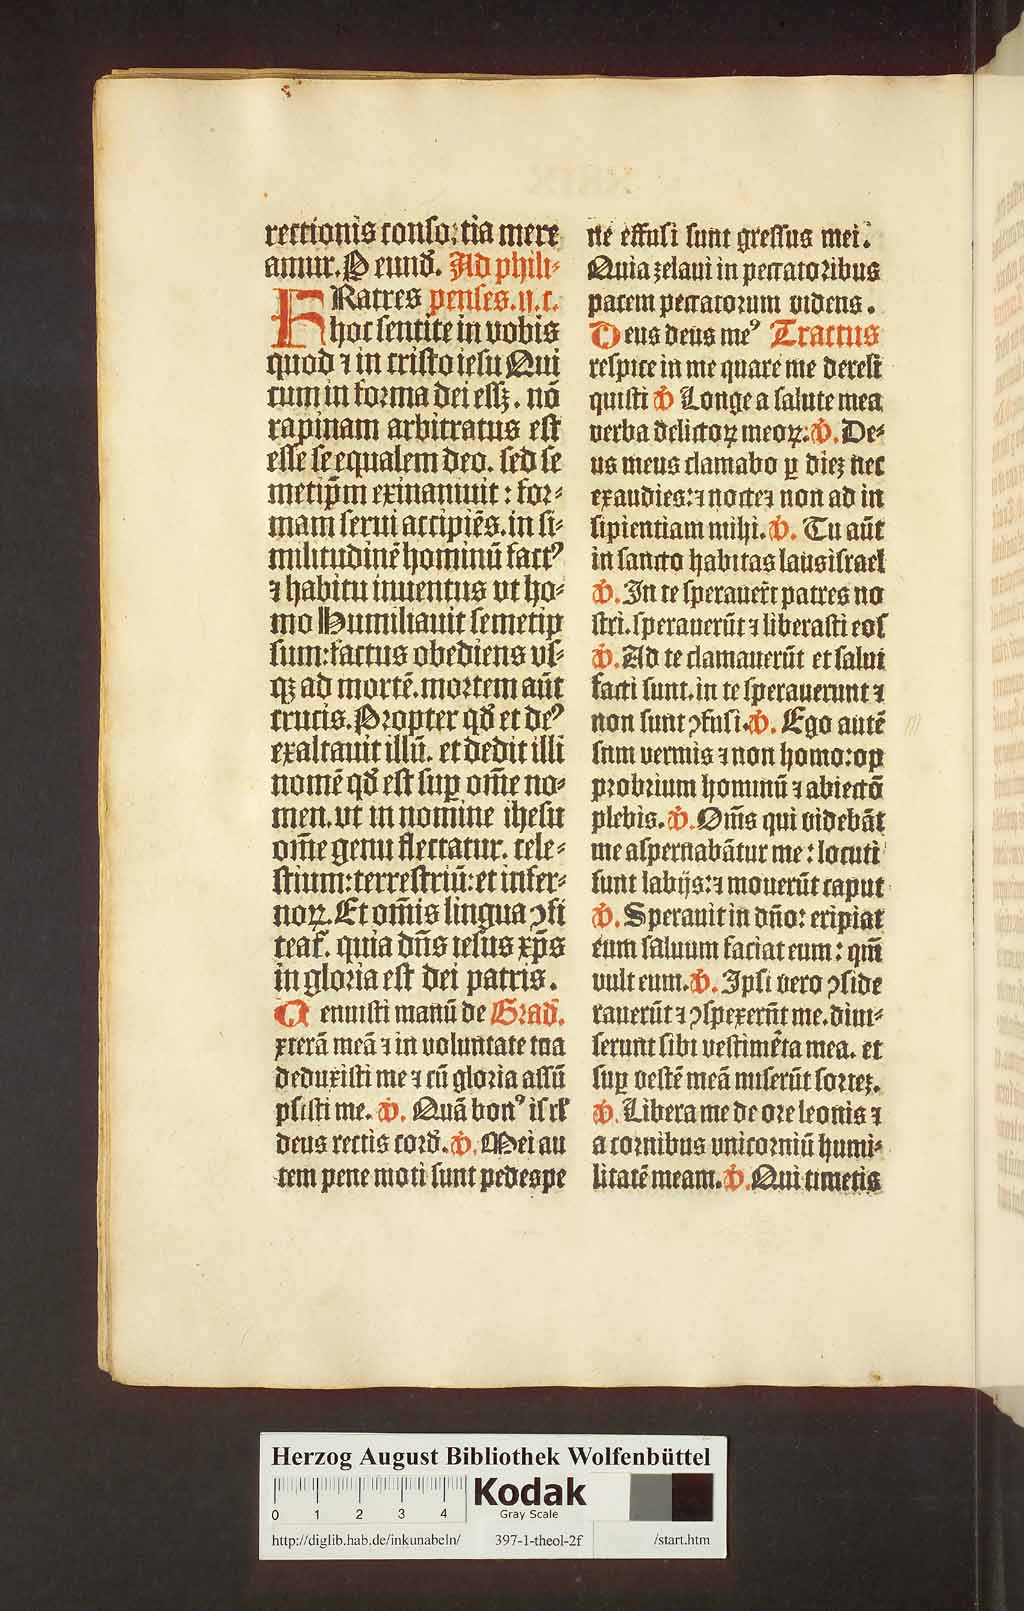 rectionis conso⁊tia mere
amur. P eund̄. Ad phili⸗
FRatres penses. ij. c.
hoc sentite in vobis
quod ⁊ in cristo iesu Qui
cum in forma dei essꝫ. nō
rapinam arbitratus est
esse se equalem deo. sed se
metip̄m exinaniuit : for⸗
mam serui accipiēs. in si⸗
militudinē hominū factꝰ
⁊ habitu inuentus vt ho⸗
mo Humiliauit semetip
sum: factus obediens vs⸗
qꝫ ad mortē. mortem aūt
crucis. Propter qd̄ et deꝰ
exaltauit illū. et dedit illi
nomē qd̄ est suꝑ om̄e no⸗
men. vt in nomine ihesu
om̄e genu flectatur. cele⸗
stium: terrestriū: et infer⸗
noꝝ. Et om̄is lingua ꝯfi
teat᷑. quia dn̄s iesus xp̄s
in gloria est dei patris.
Tenuisti manū de Grad̄.
xterā meā ⁊ in voluntate tua
deduxisti me ⁊ cū gloria assū
psisti me. ℣. Quā bonꝰ isrl̄
deus rectis cord̄. ℣. Mei au
tem pene moti sunt pedes pe
ne effusi sunt gressus mei.
Quia zelaui in peccatoribus
pacem peccatorum videns.
Deus deus meꝰ Tractus
respice in me quare me dereli
quisti ℣ Longe a salute mea
verba delictoꝝ meoꝝ. ℣. De⸗
us meus clamabo ꝑ dieꝫ nec
exaudies: ⁊ nocte⁊ non ad in
sipientiam mihi. ℣. Tu aūt
in sancto habitas laus israel
℣. In te sperauer̄t patres no
stri. sperauerūt ⁊ liberasti eos
℣. Ad te clamauerūt et salui
facti sunt. in te sperauerunt ⁊
non sunt ꝯfusi. ℣. Ego autē
sum vermis ⁊ non homo: op
probrium hominū ⁊ abiectō
plebis. ℣. Om̄s qui videbāt
me aspernabātur me : locuti
sunt labijs: ⁊ mouerūt caput
℣. Sperauit in dn̄o: eripiat
eum saluum faciat eum : qm̄
vult eum. ℣. Ipsi vero ꝯside
rauerūt ⁊ ꝯspexerūt me. diui⸗
serunt sibi vestimēta mea. et
suꝑ vestē meā miserūt sorteꝫ.
℣. Libera me de ore leonis ⁊
a cornibus vnicorniū humi⸗
litatē meam. ℣. Qui timetis
Herzog August Bibliothek Wolfenbüttel
0 1 2 3 4
Kodak
Gray Scale
http://diglib.hab.de/inkunabeln/ 397-1-theol-2f /start.htm